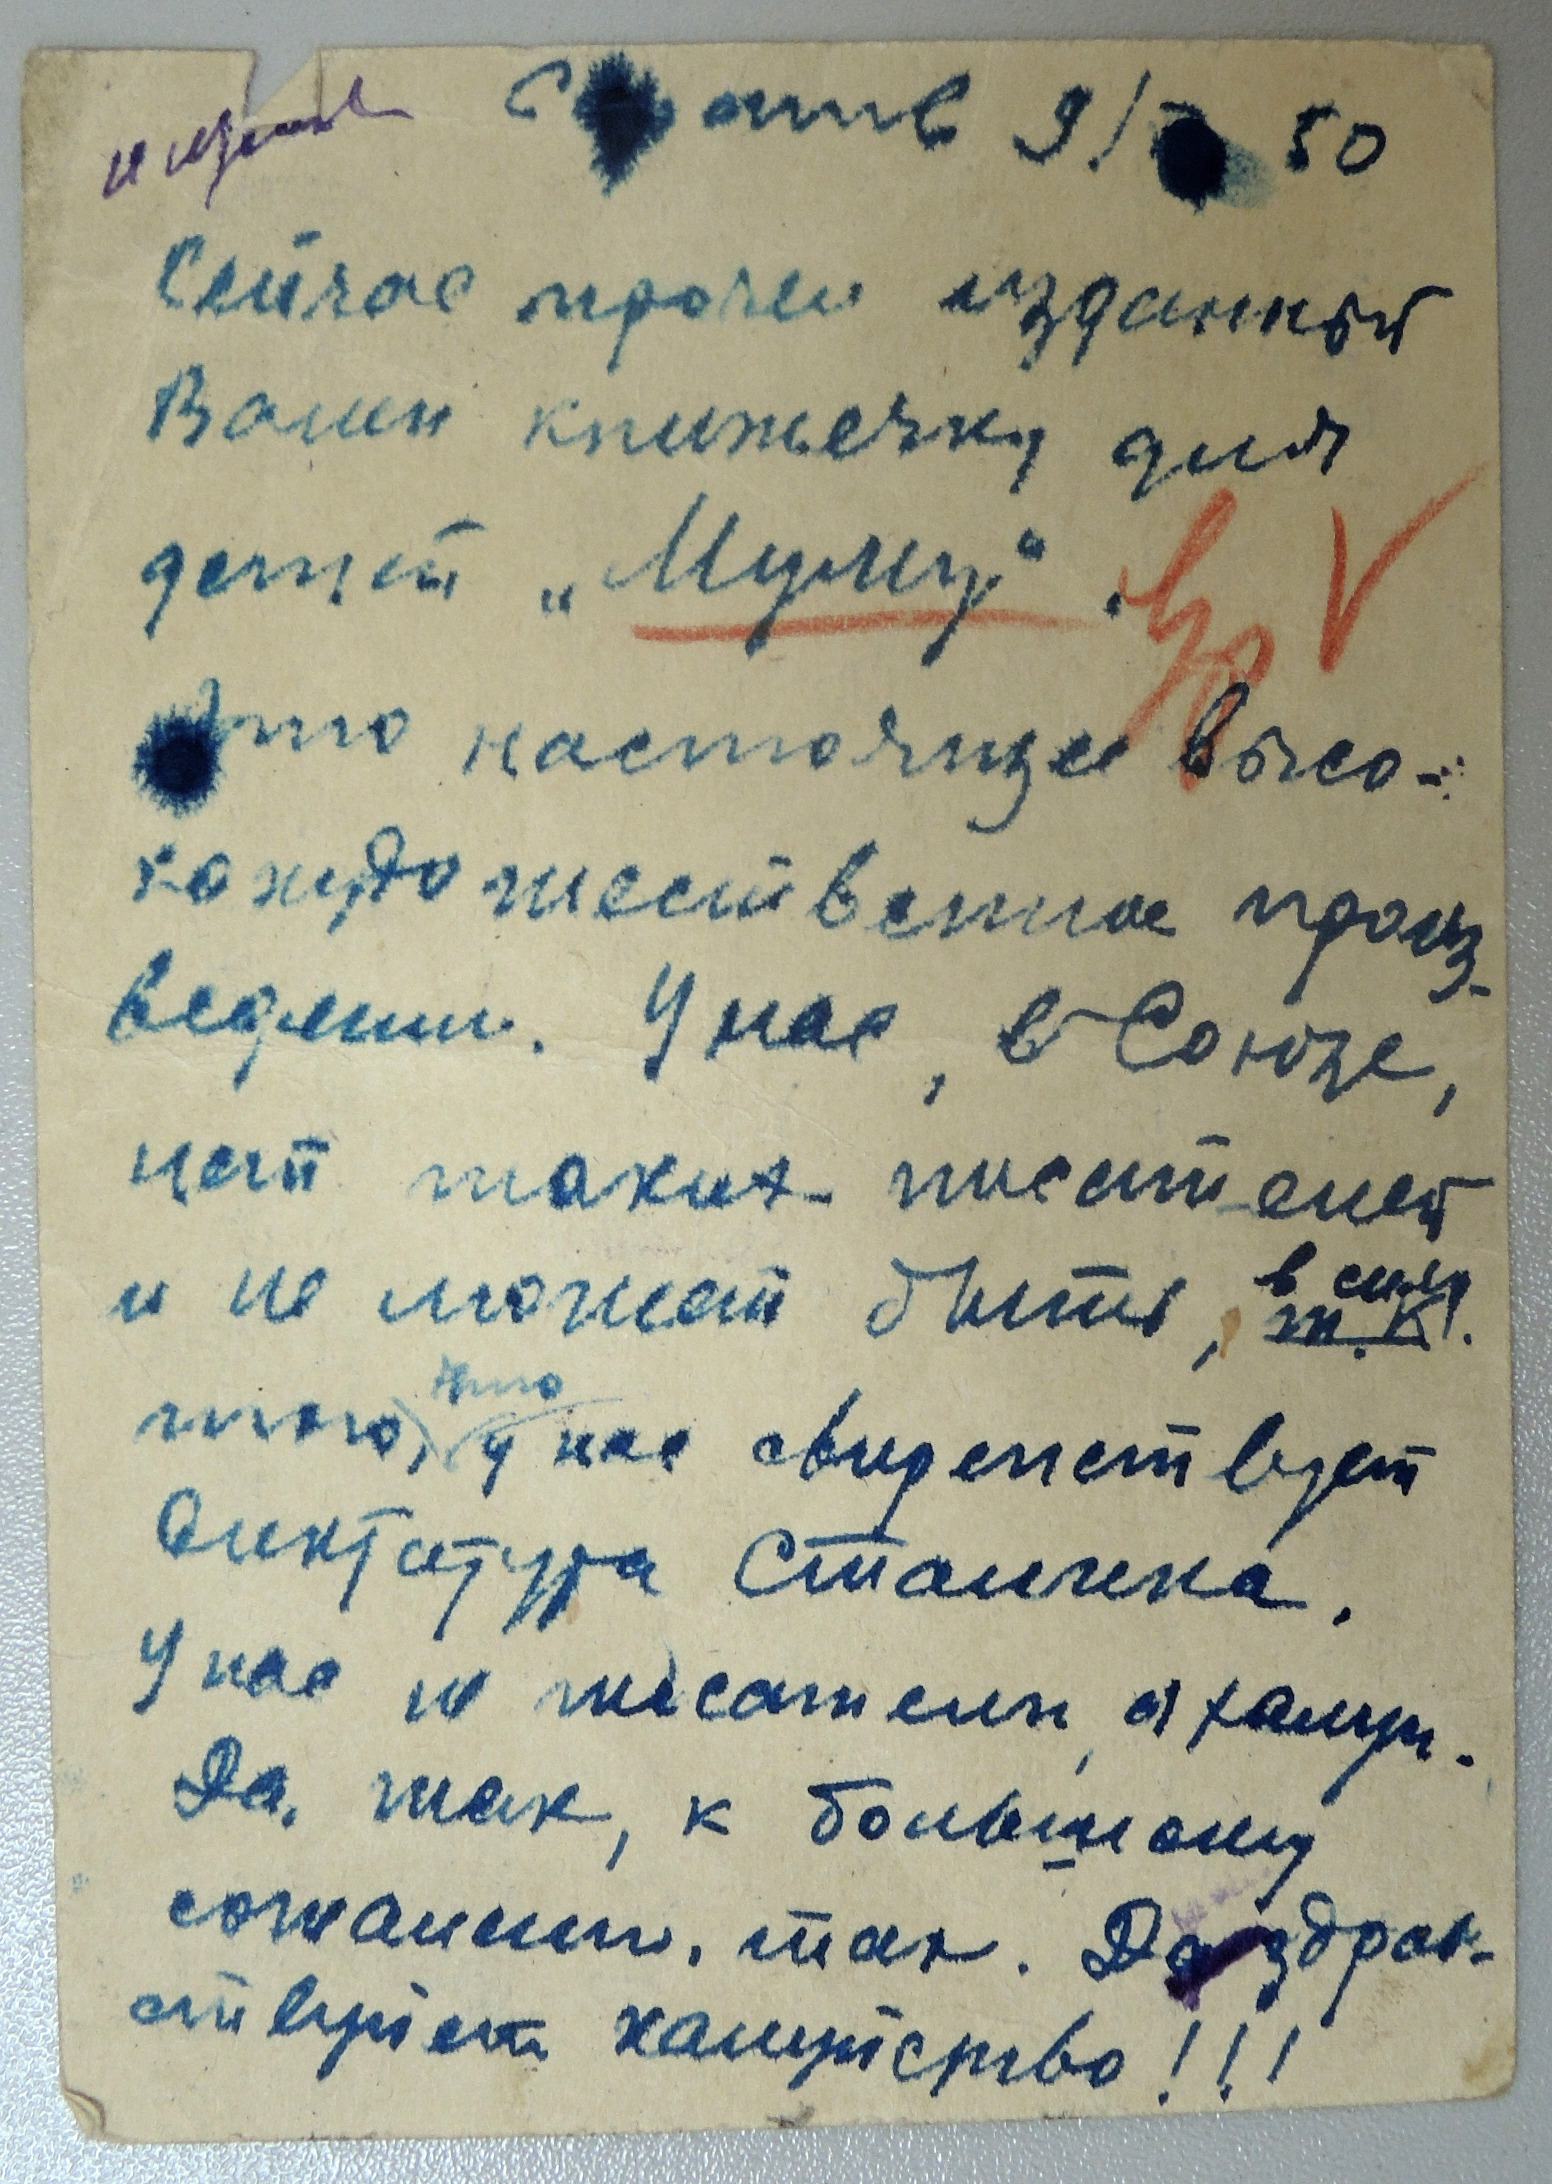 9/ 50
Сейчас прочел изданный
Вами книжечку для
детей „Муму“.
Это настоящее высо-
кохудожественное произ-
ведение. У нас, в Союзе,
нет таких писателей
и не может быть, в силу т.к.
того, что у нас свирепствует
диктатура Сталина.
У нас не писатели, а халуи.
Да, так, к большому
сожалению, так. Да здрав-
ствует халуйство!!!